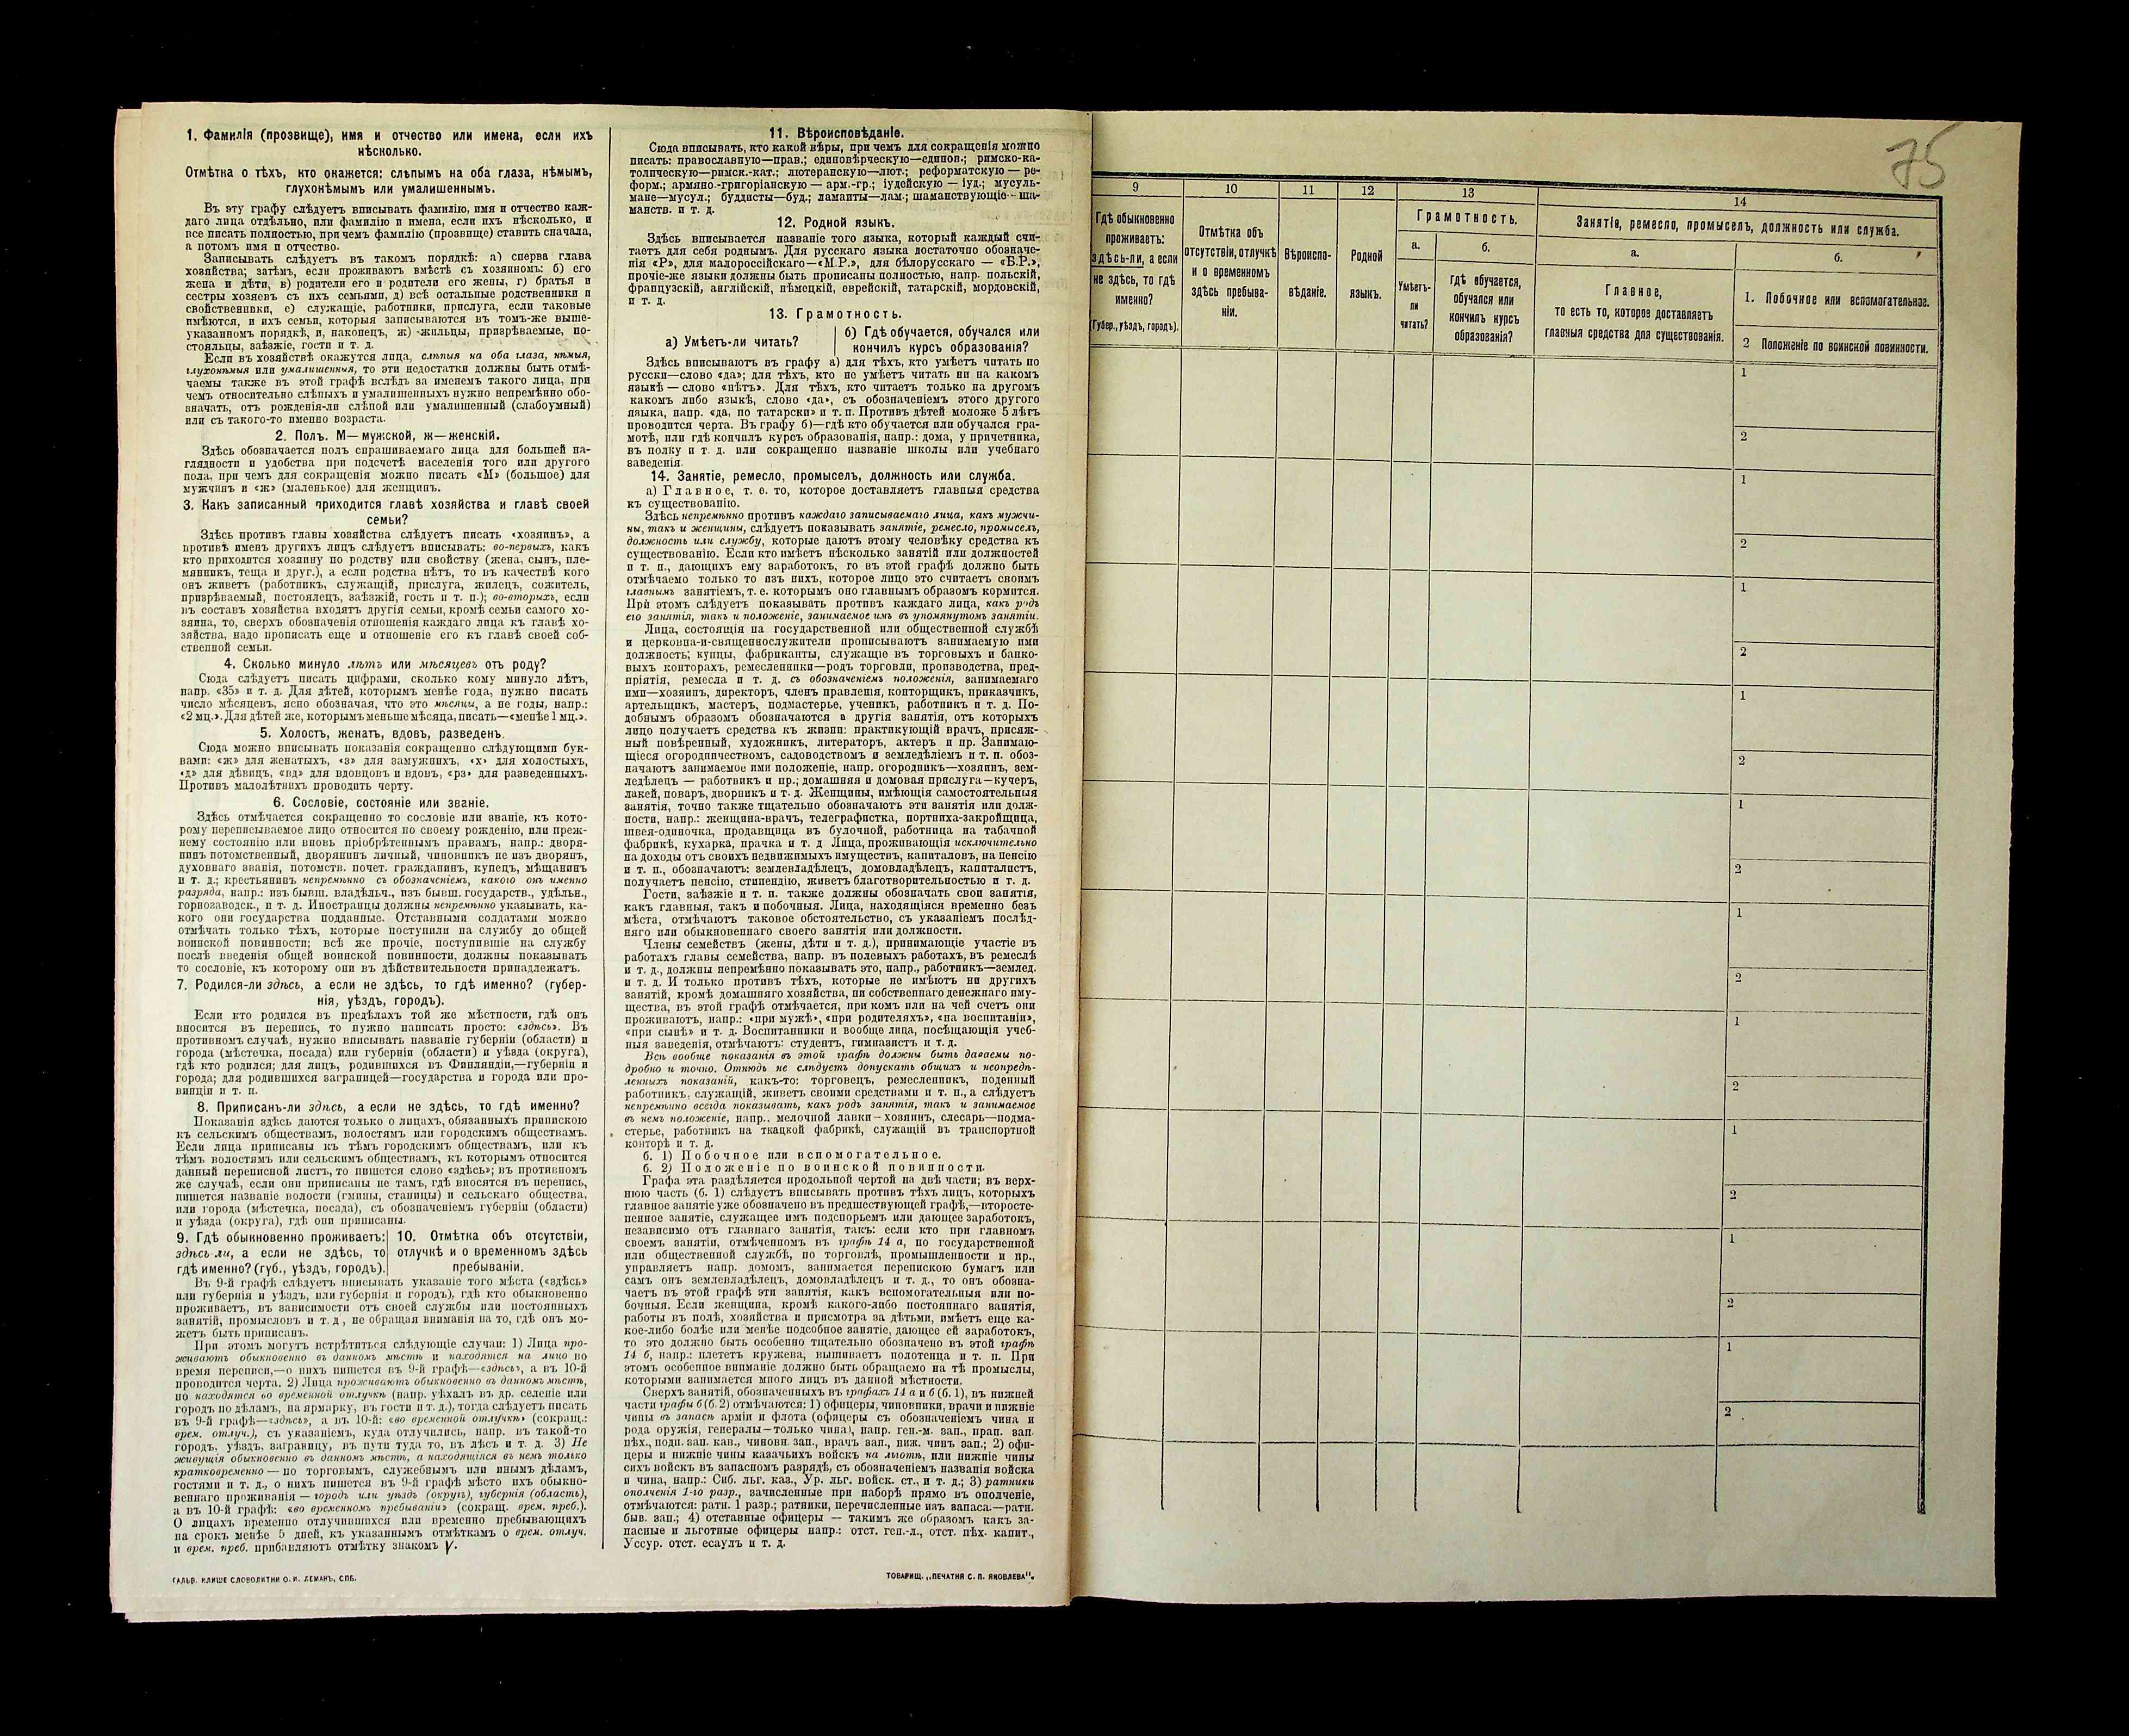 1. Фамилія (прозвище), имя и отчество или имена, если ихъ
нѣсколько.
Отмѣтка о тѣхъ, кто окажется: слѣпымъ на оба глаза, нѣмымъ,
глухонѣмымъ или умалишеннымъ.
Въ эту графу слѣдуетъ вписывать фамилію, имя и отчество каж-
даго лица отдѣльно, или фамилію и имена, если ихъ нѣсколько, и
все писать полностью, при чемъ фамилію (прозвище) ставить сначала,
а потомъ имя и отчество.
Записывать слѣдуетъ въ такомъ порядкѣ: а) сперва глава
хозяйства; затѣмъ, если проживаютъ вмѣстѣ съ хозяиномъ: б) его
жена и дѣти, в) родители его и родители его жены, г) братья и
сестры хозяевъ съ ихъ семьями, д) всѣ остальные родственники и
свойственники, е) служащіе, работники, прислуга, если таковые
имѣются, и ихъ семьи, которыя записываются въ томъ-же выше-
указанномъ порядкѣ, и, наконецъ, ж) жильцы, призрѣваемые, по-
стояльцы, заѣзжіе, гости и т. д.
Если въ хозяйствѣ окажутся лица, слѣпыя на оба глаза, нѣмыя,
глухонѣмыя или умалишенныя, то эти недостатки должны быть отмѣ-
чаемы также въ этой графѣ вслѣдъ за именемъ такого лица, при
чемъ относительно слѣпыхъ и умалишенныхъ нужно непремѣнно обо-
значать, отъ рожденія-ли слѣпой или умалишенный (слабоумный)
или съ такого-то именно возраста.
2. Полъ. М—мужской, ж—женскій.
Здѣсь обозначается полъ спрашиваемаго лица для большей на-
глядности и удобства при подсчетѣ населенія того или другого
пола, при чемъ для сокращенія можно писать «М» (большое) для
мужчинъ и «ж» (маленькое) для женщинъ.
3. Какъ записанный приходится главѣ хозяйства и главѣ своей
семьи?
Здѣсь противъ главы хозяйства слѣдуетъ писать «хозяинъ», а
противъ именъ другихъ лицъ слѣдуетъ вписывать: во-первыхъ, какъ
кто приходится хозяину по родству или свойству (жена, сынъ, пле-
мянникъ, теща и друг.), а если родства нѣтъ, то въ качествѣ кого
онъ живетъ (работникъ, служащій, прислуга, жилецъ, сожитель,
призрѣваемый, постоялецъ, заѣзжій, гость и т. п.); во-вторыхъ, если
въ составъ хозяйства входятъ другія семьи, кромѣ семьи самого хо-
зяина, то, сверхъ обозначенія отношенія каждаго лица къ главѣ хо-
зяйства, надо прописать еще и отношеніе его къ главѣ своей соб-
ственной семьи.
4. Сколько минуло лѣтъ или мѣсяцевъ отъ роду?
Сюда слѣдуетъ писать цифрами, сколько кому минуло лѣтъ,
напр. «35» и т. д. Для дѣтей, которымъ менѣе года, нужно писать
число мѣсяцевъ, ясно обозначая, что это мѣсяцы, а не годы, напр.:
«2 мц.». Для дѣтей же, которымъ меньше мѣсяца, писать—«менѣе 1 мц.».
5. Холостъ, женатъ, вдовъ, разведенъ.
Сюда можно вписывать показанія сокращенно слѣдующими бук-
вами: «ж» для женатыхъ, «з» для замужнихъ, «х» для холостыхъ,
«д» для дѣвицъ, «вд» для вдовцовъ и вдовъ, «рз» для разведенныхъ.
Противъ малолѣтнихъ проводить черту.
6. Сословіе, состояніе или званіе.
Здѣсь отмѣчается сокращенно то сословіе или званіе, къ кото-
рому переписываемое лицо относится по своему рожденію, или преж-
нему состоянію или вновь пріобрѣтеннымъ правамъ, напр.: дворя-
нинъ потомственный, дворянинъ личный, чиновникъ не изъ дворянъ,
духовнаго званія, потомств. почет. гражданинъ, купецъ, мѣщанинъ
и т. д.; крестьянинъ непремѣнно съ обозначеніемъ, какого онъ именно
разряда, напр.: изъ бывш. владѣльч., изъ бывш. государств., удѣльн.,
горнозаводск., и т. д. Иностранцы должны непремѣнно указывать, ка-
кого они государства подданные. Отставными солдатами можно
отмѣчать только тѣхъ, которые поступили на службу до общей
воинской повинности; всѣ же прочіе, поступившіе на службу
послѣ введенія общей воинской повинности, должны показывать
то сословіе, къ которому они въ дѣйствительности принадлежатъ.
7. Родился-ли здѣсь, а если не здѣсь, то гдѣ именно? (губер-
нія, уѣздъ, городъ).
Если кто родился въ предѣлахъ той же мѣстности, гдѣ онъ
вносится въ перепись, то нужно написать просто: «здѣсь». Въ
противномъ случаѣ, нужно вписывать названіе губерніи (области) и
города (мѣстечка, посада) или губерніи (области) и уѣзда (округа),
гдѣ кто родился; для лицъ, родившихся въ Финляндіи,—губерніи и
города; для родившихся заграницей—государства и города или про-
винціи и т. п.
8. Приписанъ-ли здѣсь, а если не здѣсь, то гдѣ именно?
Показанія здѣсь даются только о лицахъ, обязанныхъ припискою
къ сельскимъ обществамъ, волостямъ или городскимъ обществамъ.
Если лица приписаны къ тѣмъ городскимъ обществамъ, или къ
тѣмъ волостямъ или сельскимъ обществамъ, къ которымъ относится
данный переписной листъ, то пишется слово «здѣсь»; въ противномъ
же случаѣ, если они приписаны не тамъ, гдѣ вносятся въ перепись,
пишется названіе волости (гмины, станицы) и сельскаго общества,
или города (мѣстечка, посада), съ обозначеніемъ губерніи (области)
и уѣзда (округа), гдѣ они приписаны.
9. Гдѣ обыкновенно проживаетъ:
здѣсь ли, а если не здѣсь, то
гдѣ именно? (губ., уѣздъ, городъ).
10. Отмѣтка объ отсутствіи,
отлучкѣ и о временномъ здѣсь
пребываніи.
Въ 9-й графѣ слѣдуетъ вписывать указаніе того мѣста («здѣсь»
или губернія и уѣздъ, или губернія и городъ), гдѣ кто обыкновенно
проживаетъ, въ зависимости отъ своей службы или постоянныхъ
занятій, промысловъ и т. д., не обращая вниманія на то, гдѣ онъ мо-
жетъ быть приписанъ.
При этомъ могутъ встрѣтиться слѣдующіе случаи: 1) Лица про-
живаютъ обыкновенно въ данномъ мѣстѣ и находятся на лицо во
время переписи,—о нихъ пишется въ 9-й графѣ—«здѣсь», а въ 10-й
проводится черта. 2) Лица проживаютъ обыкновенно въ данномъ мѣстѣ,
но находятся во временной отлучкѣ (напр. уѣхалъ въ др. селеніе или
городъ по дѣламъ, на ярмарку, въ гости и т. д.), тогда слѣдуетъ писать
въ 9-й графѣ—«здѣсь», а въ 10-й: «во временной отлучкѣ» (сокращ.:
врем. отлуч.), съ указаніемъ, куда отлучились, напр. въ такой-то
городъ, уѣздъ, заграницу, въ пути туда то, въ лѣсъ и т. д. 3) Не
живущія обыкновенно въ данномъ мѣстѣ, а находящіяся въ немъ только
кратковременно—по торговымъ, служебнымъ или инымъ дѣламъ,
гостями и т. д., о нихъ пишется въ 9-й графѣ мѣсто ихъ обыкно-
веннаго проживанія—городъ или уѣздъ (округъ), губернія (область),
а въ 10-й графѣ: «во временномъ пребываніи» (сокращ. врем. преб.).
О лицахъ временно отлучившихся или временно пребывающихъ
на срокъ менѣе 5 дней, къ указаннымъ отмѣткамъ о врем. отлуч.
и врем. преб. прибавляютъ отмѣтку знакомъ V.
ГАЛЬВ. КЛИШЕ СЛОВОЛИТНИ О. И. ЛЕМАНЪ, СПБ.
11. Вѣроисповѣданіе.
Сюда вписывать, кто какой вѣры, при чемъ для сокращенія можно
писать: православную—прав.; единовѣрческую—единов.; римско-ка-
толическую—римск.-кат.; лютеранскую—лют.; реформатскую—ре-
форм.; армяно-григоріанскую—арм.-гр.; іудейскую—іуд.; мусуль-
мане—мусул.; буддисты—буд.; ламаиты—лам.; шаманствующіе—ша-
манств. и т. д.
12. Родной языкъ.
Здѣсь вписывается названіе того языка, который каждый счи-
таетъ для себя роднымъ. Для русскаго языка достаточно обозначе-
нія «Р», для малороссійскаго—«М.Р.», для бѣлорусскаго — «Б.Р.»,
прочіе-же языки должны быть прописаны полностью, напр. польскій,
французскій, англійскій, нѣмецкій, еврейскій, татарскій, мордовскій,
и т. д.
13. Грамотность.
а) Умѣетъ-ли читать?
б) Гдѣ обучается, обучался или
кончилъ курсъ образованія?
Здѣсь вписываютъ въ графу а) для тѣхъ, кто умѣетъ читать по
русски—слово «да»; для тѣхъ, кто не умѣетъ читать ни на какомъ
языкѣ—слово «нѣтъ». Для тѣхъ, кто читаетъ только на другомъ
какомъ либо языкѣ, слово «да», съ обозначеніемъ этого другого
языка, напр. «да, по татарски» и т. п. Противъ дѣтей моложе 5 лѣтъ
проводится черта. Въ графу б)—гдѣ кто обучается или обучался гра-
мотѣ, или гдѣ кончилъ курсъ образованія, напр.: дома, у причетника,
въ полку и т. д. или сокращенно названіе школы или учебнаго
заведенія.
14. Занятіе, ремесло, промыселъ, должность или служба.
а) Главное, т. е. то, которое доставляетъ главныя средства
къ существованію.
Здѣсь непремѣнно противъ каждаго записываемаго лица, какъ мужчи-
ны, такъ и женщины, слѣдуетъ показывать занятіе, ремесло, промыселъ,
должность или службу, которые даютъ этому человѣку средства къ
существованію. Если кто имѣетъ нѣсколько занятій или должностей
и т. п., дающихъ ему заработокъ, то въ этой графѣ должно быть
отмѣчаемо только то изъ нихъ, которое лицо это считаетъ своимъ
главнымъ занятіемъ, т. е. которымъ оно главнымъ образомъ кормится.
При этомъ слѣдуетъ показывать противъ каждаго лица, какъ родъ
его занятія, такъ и положеніе, занимаемое имъ въ упомянутомъ занятіи.
Лица, состоящія на государственной или общественной службѣ
и церковно-и-священнослужители прописываютъ занимаемую ими
должность; купцы, фабриканты, служащіе въ торговыхъ и банко-
выхъ конторахъ, ремесленники—родъ торговли, производства, пред-
пріятія, ремесла и т. д. съ обозначеніемъ положенія, занимаемаго
ими—хозяинъ, директоръ, членъ правленія, конторщикъ, приказчикъ,
артельщикъ, мастеръ, подмастерье, ученикъ, работникъ и т. д. По-
добнымъ образомъ обозначаются и другія занятія, отъ которыхъ
лицо получаетъ средства къ жизни: практикующій врачъ, присяж-
ный повѣренный, художникъ, литераторъ, актеръ и пр. Занимаю-
щіеся огородничествомъ, садоводствомъ и земледѣліемъ и т. п. обоз-
начаютъ занимаемое ими положеніе, напр. огородникъ—хозяинъ, зем-
ледѣлецъ — работникъ и пр.; домашняя и домовая прислуга—кучеръ,
лакей, поваръ, дворникъ и т. д. Женщины, имѣющія самостоятельныя
занятія, точно также тщательно обозначаютъ эти занятія или долж-
ности, напр.: женщина-врачъ, телеграфистка, портниха-закройщица,
швея-одиночка, продавщица въ булочной, работница на табачной
фабрикѣ, кухарка, прачка и т. д. Лица, проживающія исключительно
на доходы отъ своихъ недвижимыхъ имуществъ, капиталовъ, на пенсію
и т. п., обозначаютъ: землевладѣлецъ, домовладѣлецъ, капиталистъ,
получаетъ пенсію, стипендію, живетъ благотворительностью и т. д.
Гости, заѣзжіе и т. п. также должны обозначать свои занятія,
какъ главныя, такъ и побочныя. Лица, находящіяся временно безъ
мѣста, отмѣчаютъ таковое обстоятельство, съ указаніемъ послѣд-
няго или обыкновеннаго своего занятія или должности.
Члены семействъ (жены, дѣти и т. д.), принимающіе участіе въ
работахъ главы семейства, напр. въ полевыхъ работахъ, въ ремеслѣ
и т. д., должны непремѣнно показывать это, напр., работникъ—землед.
и т. д. И только противъ тѣхъ, которые не имѣютъ ни другихъ
занятій, кромѣ домашняго хозяйства, ни собственнаго денежнаго иму-
щества, въ этой графѣ отмѣчается, при комъ или на чей счетъ они
проживаютъ, напр.: «при мужѣ», «при родителяхъ», «на воспитаніи»,
«при сынѣ» и т. д. Воспитанники и вообще лица, посѣщающія учеб-
ныя заведенія, отмѣчаютъ: студентъ, гимназистъ и т. д.
Всѣ вообще показанія въ этой графѣ должны быть даваемы по-
дробно и точно. Отнюдь не слѣдуетъ допускать общихъ и неопредѣ-
ленныхъ показаній, какъ-то: торговецъ, ремесленникъ, поденный
работникъ, служащій, живетъ своими средствами и т. п., а слѣдуетъ
непремѣнно всегда показывать, какъ родъ занятія, такъ и занимаемое
въ немъ положеніе, напр.. мелочной лавки—хозяинъ, слесарь—подма-
стерье, работникъ на ткацкой фабрикѣ, служащій въ транспортной
конторѣ и т. д.
б. 1) Побочное или вспомогательное.
б. 2) Положеніе по воинской повинности.
Графа эта раздѣляется продольной чертой на двѣ части; въ верх-
нюю часть (б. 1) слѣдуетъ вписывать противъ тѣхъ лицъ, которыхъ
главное занятіе уже обозначено въ предшествующей графѣ,—второсте-
пенное занятіе, служащее имъ подспорьемъ или дающее заработокъ,
независимо отъ главнаго занятія, такъ: если кто при главномъ
своемъ занятіи, отмѣченномъ въ графѣ 14 а, по государственной
или общественной службѣ, по торговлѣ, промышленности и пр.,
управляетъ напр. домомъ, занимается перепискою бумагъ или
самъ онъ землевладѣлецъ, домовладѣлецъ и т. д., то онъ обозна-
чаетъ въ этой графѣ эти занятія, какъ вспомогательныя или по-
бочныя. Если женщина, кромѣ какого-либо постояннаго занятія,
работы въ полѣ, хозяйства и присмотра за дѣтьми, имѣетъ еще ка-
кое-либо болѣе или менѣе подсобное занятіе, дающее ей заработокъ,
то это должно быть особенно тщательно обозначено въ этой графѣ
14 б, напр.: плететъ кружева, вышиваетъ полотенца и т. п. При
этомъ особенное вниманіе должно быть обращаемо на тѣ промыслы,
которыми занимается много лицъ въ данной мѣстности.
Сверхъ занятій, обозначенныхъ въ графахъ 14 а и б (б. 1), въ нижней
части графы б (б. 2) отмѣчаются: 1) офицеры, чиновники, врачи и нижніе
чины въ запасѣ арміи и флота (офицеры съ обозначеніемъ чина и
рода оружія, генералы—только чина), напр. ген.-м. зап., прап. зап.
пѣх., подп. зап. кав., чиновн. зап., врачъ зап., ниж. чинъ зап.; 2) офи-
церы и нижніе чины казачьихъ войскъ на льготѣ, или нижніе чины
сихъ войскъ въ запасномъ разрядѣ, съ обозначеніемъ названія войска
и чина, напр.: Сиб. льг. каз., Ур. льг. войск. ст., и т. д.; 3) ратники
ополченія 1-го разр., зачисленные при наборѣ прямо въ ополченіе,
отмѣчаются: ратн. 1 разр.; ратники, перечисленные изъ запаса.—ратн.
быв. зап.; 4) отставные офицеры — такимъ же образомъ какъ за-
пасные и льготные офицеры напр.: отст. ген.-л., отст. пѣх. капит.,
Уссур. отст. есаулъ и т. д.
ТОВАРИЩ. „ПЕЧАТНЯ С. П. ЯКОВЛЕВА".
75
9
10
11
12
13
14
Гдѣ обыкновенно
проживаетъ:
здѣсь-ли, а если
не здѣсь, то гдѣ
именно?
(Губер., уѣздъ, городъ).
Отмѣтка объ
отсутствіи, отлучкѣ
и о временномъ
здѣсь пребыва-
ніи.
Вѣроиспо-
вѣданіе.
Родной
языкъ.
Грамотность.
а.
Умѣетъ-
ли
читать?
б.
гдѣ обучается,
обучался или
кончилъ курсъ
образованія?
Занятіе, ремесло, промыселъ, должность или служба.
а.
Главное,
то есть то, которое доставляетъ
главныя средства для существованія.
б.
1. Побочное или вспомогательное.
2 Положеніе по воинской повинности.
1
2
1
2
1
2
1
2
1
2
1
2
1
2
1
2
1
2
1
2